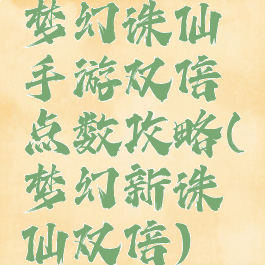 梦幻诛仙
手游双倍
点数攻略(
梦幻新诛
仙双倍)